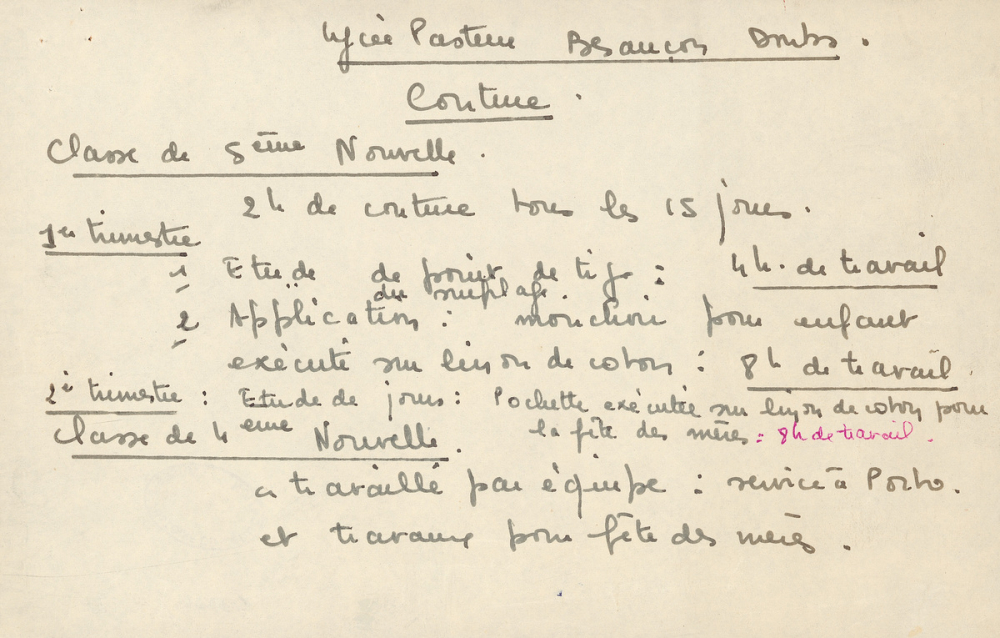 Lycée Pasteur Besançon Doubs.
Couture.
Classe de 5ème Nouvelle.
2h de couture tous les 15 jours.
1er trimestre
1 Etude de point de tige : 4h. de travail
du remplage.
2 Application : mouchoir pour enfant
exécuté sur linon de coton : 8h de travail.
2è trimestre : Etude de jours : Pochette exécutée sur linon de coton pour
la fête des mères : 8h de travail.
Classe de 4eme Nouvelle.
a travaillé par équipe : service à Porto.
et travaux pour fête des mères.